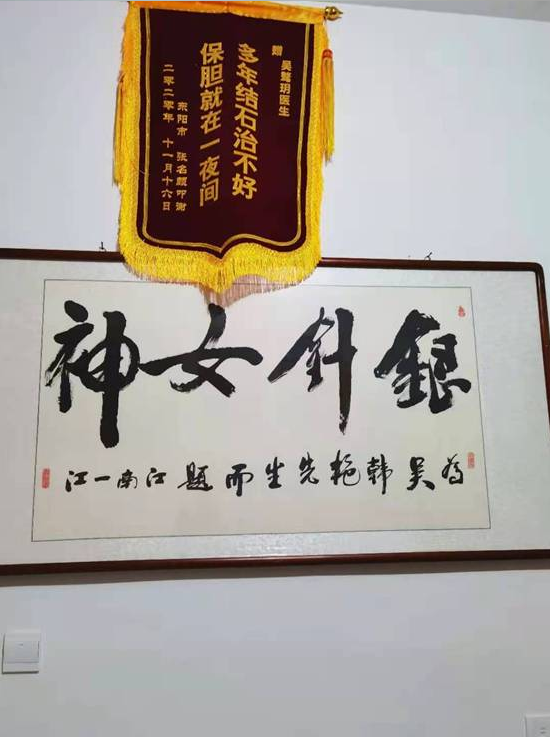 赠 吴玥医生
多年结石治不好
保胆就在一夜间
东阳市 张名叩谢
二零二零年 十一月十六日
銀針女神
为吴韩艳先生而题江南一江